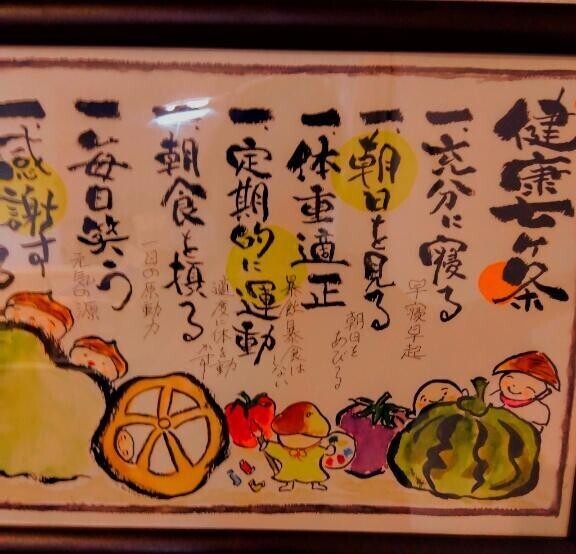 健康七ヶ条
一、充分に寝る
早寝早起
一、朝日を見る
朝日を
あびる
一、体重適正
暴飲暴食は
しない
一、定期的に運動
適度に体を動かす
一、朝食を摂る
一日の原動力
一、毎日笑う
元気の源
一、感謝する